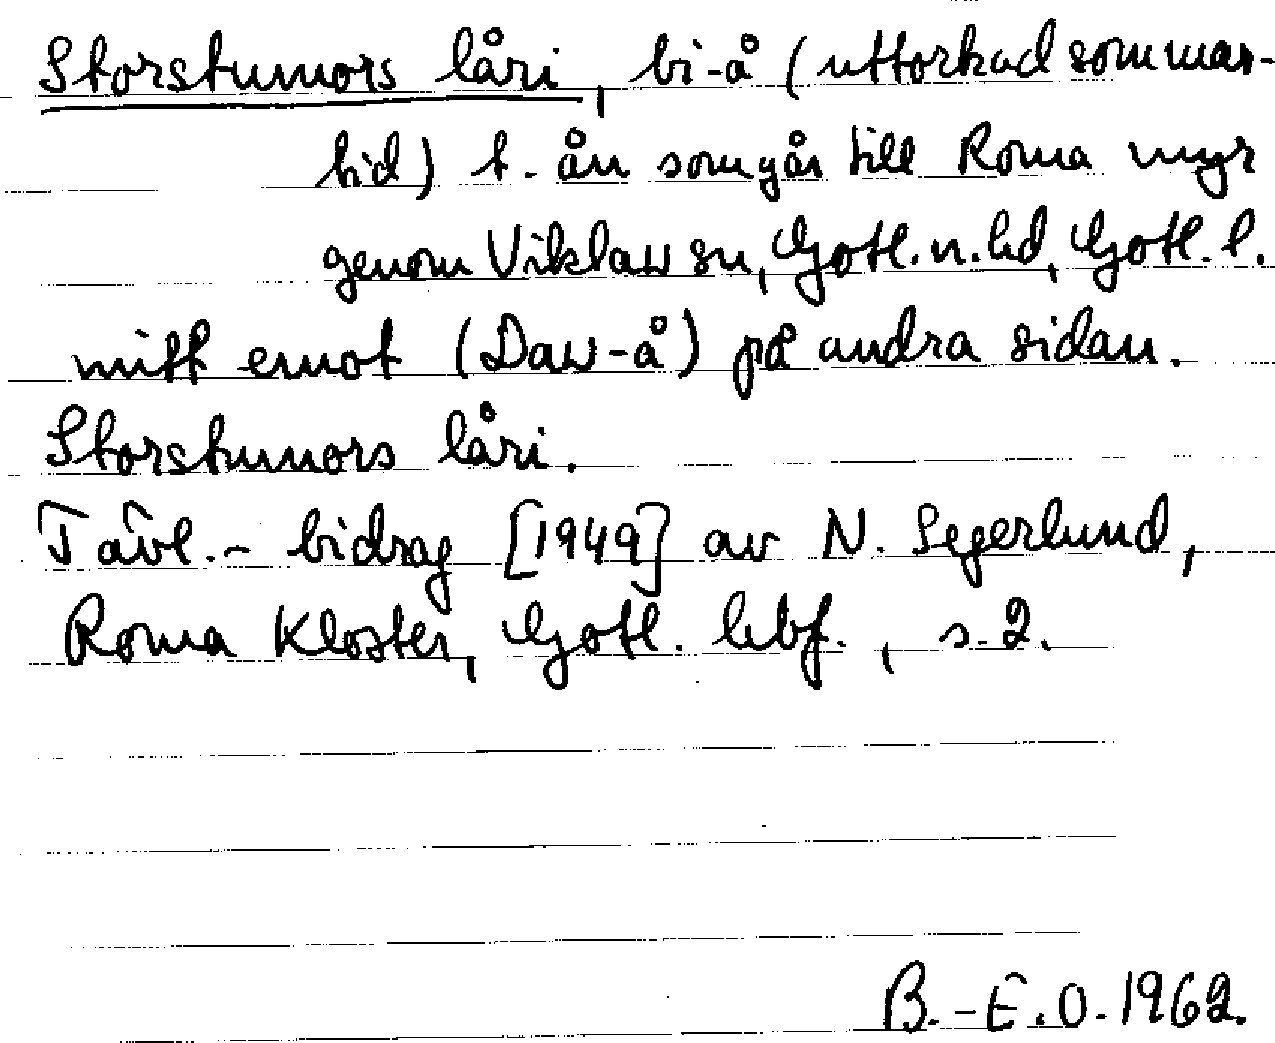 Storstumors låri, bi-å (uttorkad sommar-
tid) t. ån som går till Roma myr
genom Viklau sn, Gotl. n. hd, Gotl. l.
mitt emot (Dau-å) på andra sidan.
Storstumors låri.
Tävl.- bidrag [1949] av N. Segerlund,
Roma Kloster, Gotl. lebf., s. 2.
B.-E.O. 1962.